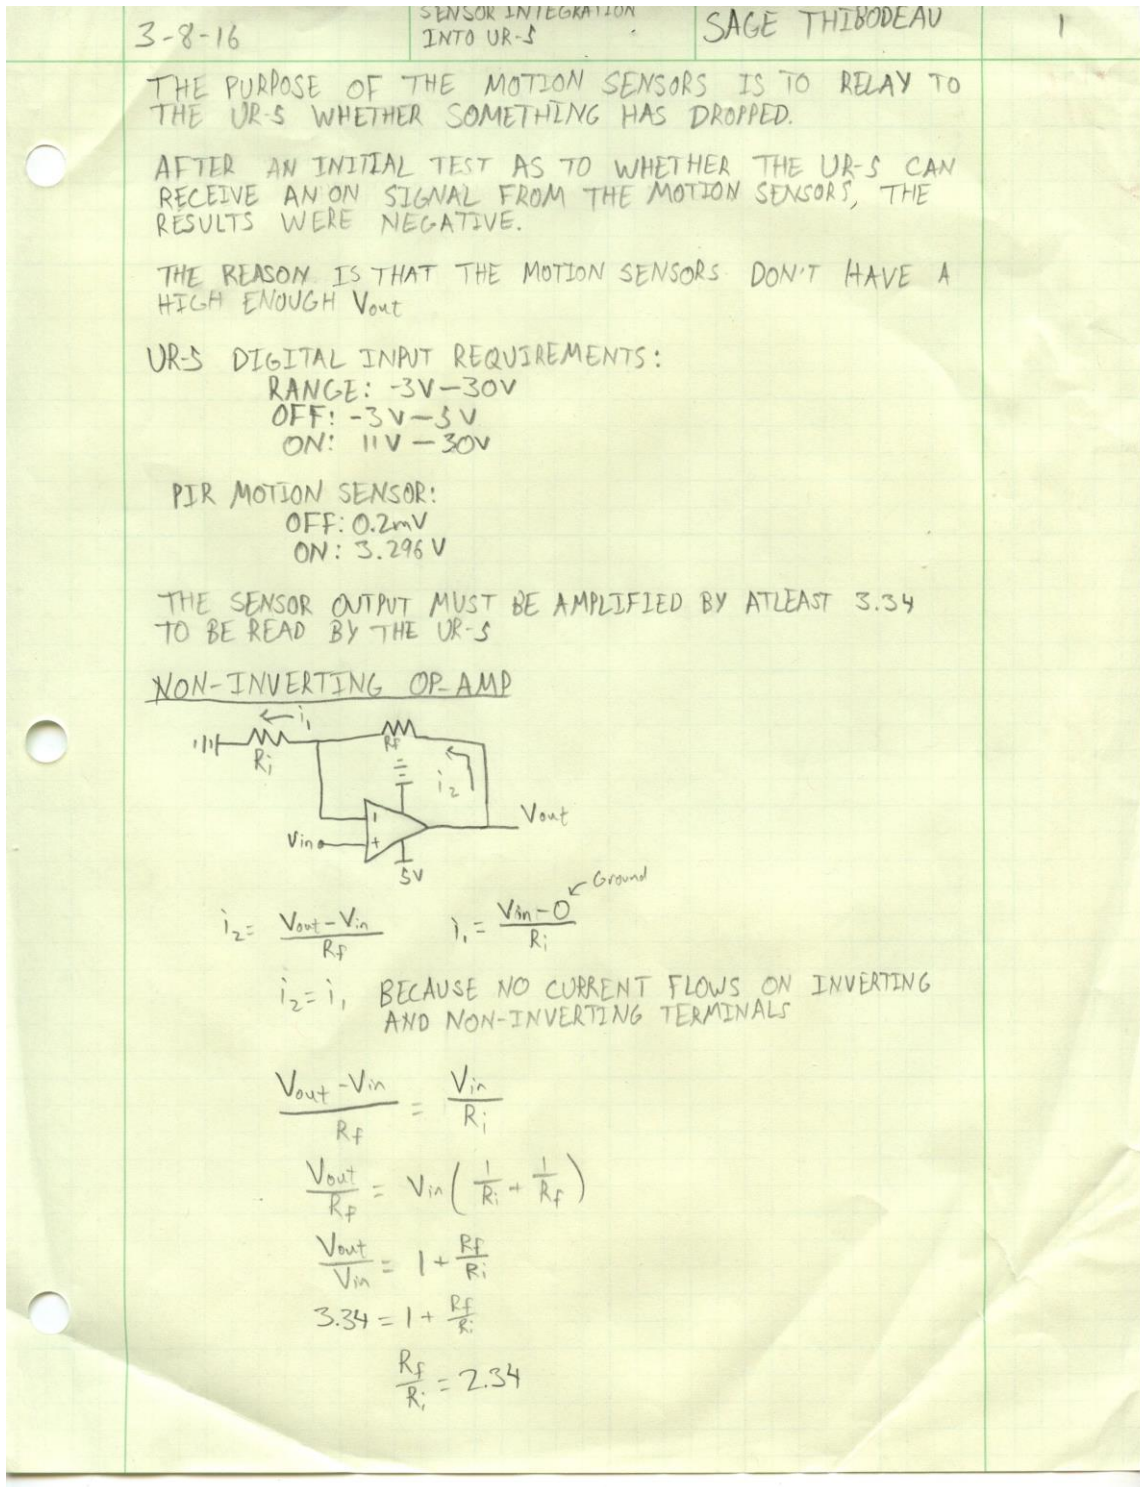 3-8-16
SENSOR INTEGRATION
INTO UR-5
SAGE THIBODEAU
1
THE PURPOSE OF THE MOTION SENSORS IS TO RELAY TO
THE UR-5 WHETHER SOMETHING HAS DROPPED.
AFTER AN INITIAL TEST AS TO WHETHER THE UR-5 CAN
RECEIVE AN ON SIGNAL FROM THE MOTION SENSORS, THE
RESULTS WERE NEGATIVE.
THE REASON IS THAT THE MOTION SENSORS DON'T HAVE A
HIGH ENOUGH Vout
UR-5 DIGITAL INPUT REQUIREMENTS:
RANGE: -3V-30V
OFF: -3V-5V
ON: 11V-30V
PIR MOTION SENSOR:
OFF: 0.2mV
ON: 3.296V
THE SENSOR OUTPUT MUST BE AMPLIFIED BY ATLEAST 3.34
TO BE READ BY THE UR-5
NON-INVERTING OP-AMP
i₁
Ri
Rf
i₂
Vout
Vin
-
+
5V
Ground
i₂ = (Vout - Vin)/Rf i₁ = (Vin - 0)/Ri
i₂ = i₁ BECAUSE NO CURRENT FLOWS ON INVERTING
AND NON-INVERTING TERMINALS
(Vout - Vin)/Rf = Vin/Ri
Vout/Rf = Vin(1/Ri + 1/Rf)
Vout/Vin = 1 + Rf/Ri
3.34 = 1 + Rf/Ri
Rf/Ri = 2.34